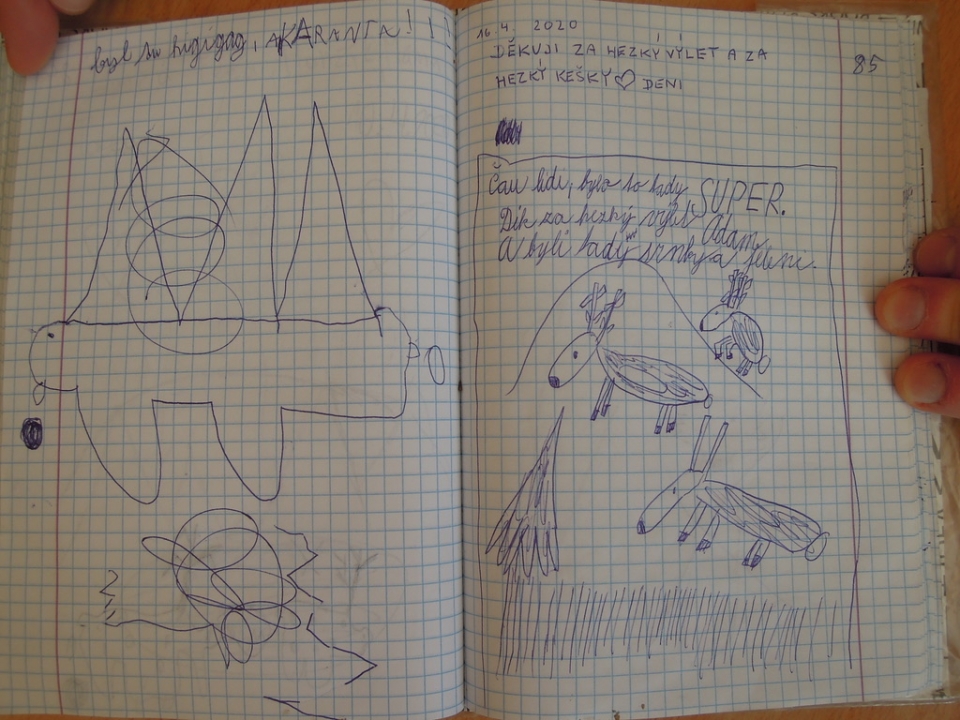 byl to higigag, a KARANTA!!!
16.4. 2020
DĚKUJI ZA HEZKÝ VÝLET A ZA
HEZKÝ KEŠKY♡ DENI
85
Čau lidi, bylo to tady SUPER.
Dík za hezký výlet Adam
A byli tady srnky a jeleni.